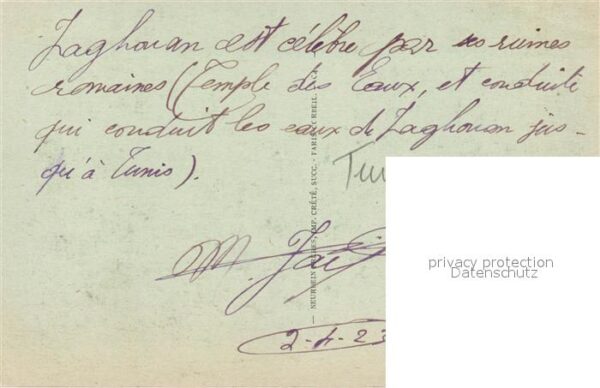 Zaghouan est célèbre par ses ruines
romaines (Temple des Eaux, et conduite
qui conduit les eaux de Zaghouan jus-
qu'à Tunis).
Tun
M.
2-4-23
NEURDEIN FRÈRES, IMP. CRÉTÉ, SUCC. - PARIS-CORBEIL
privacy protection
Datenschutz